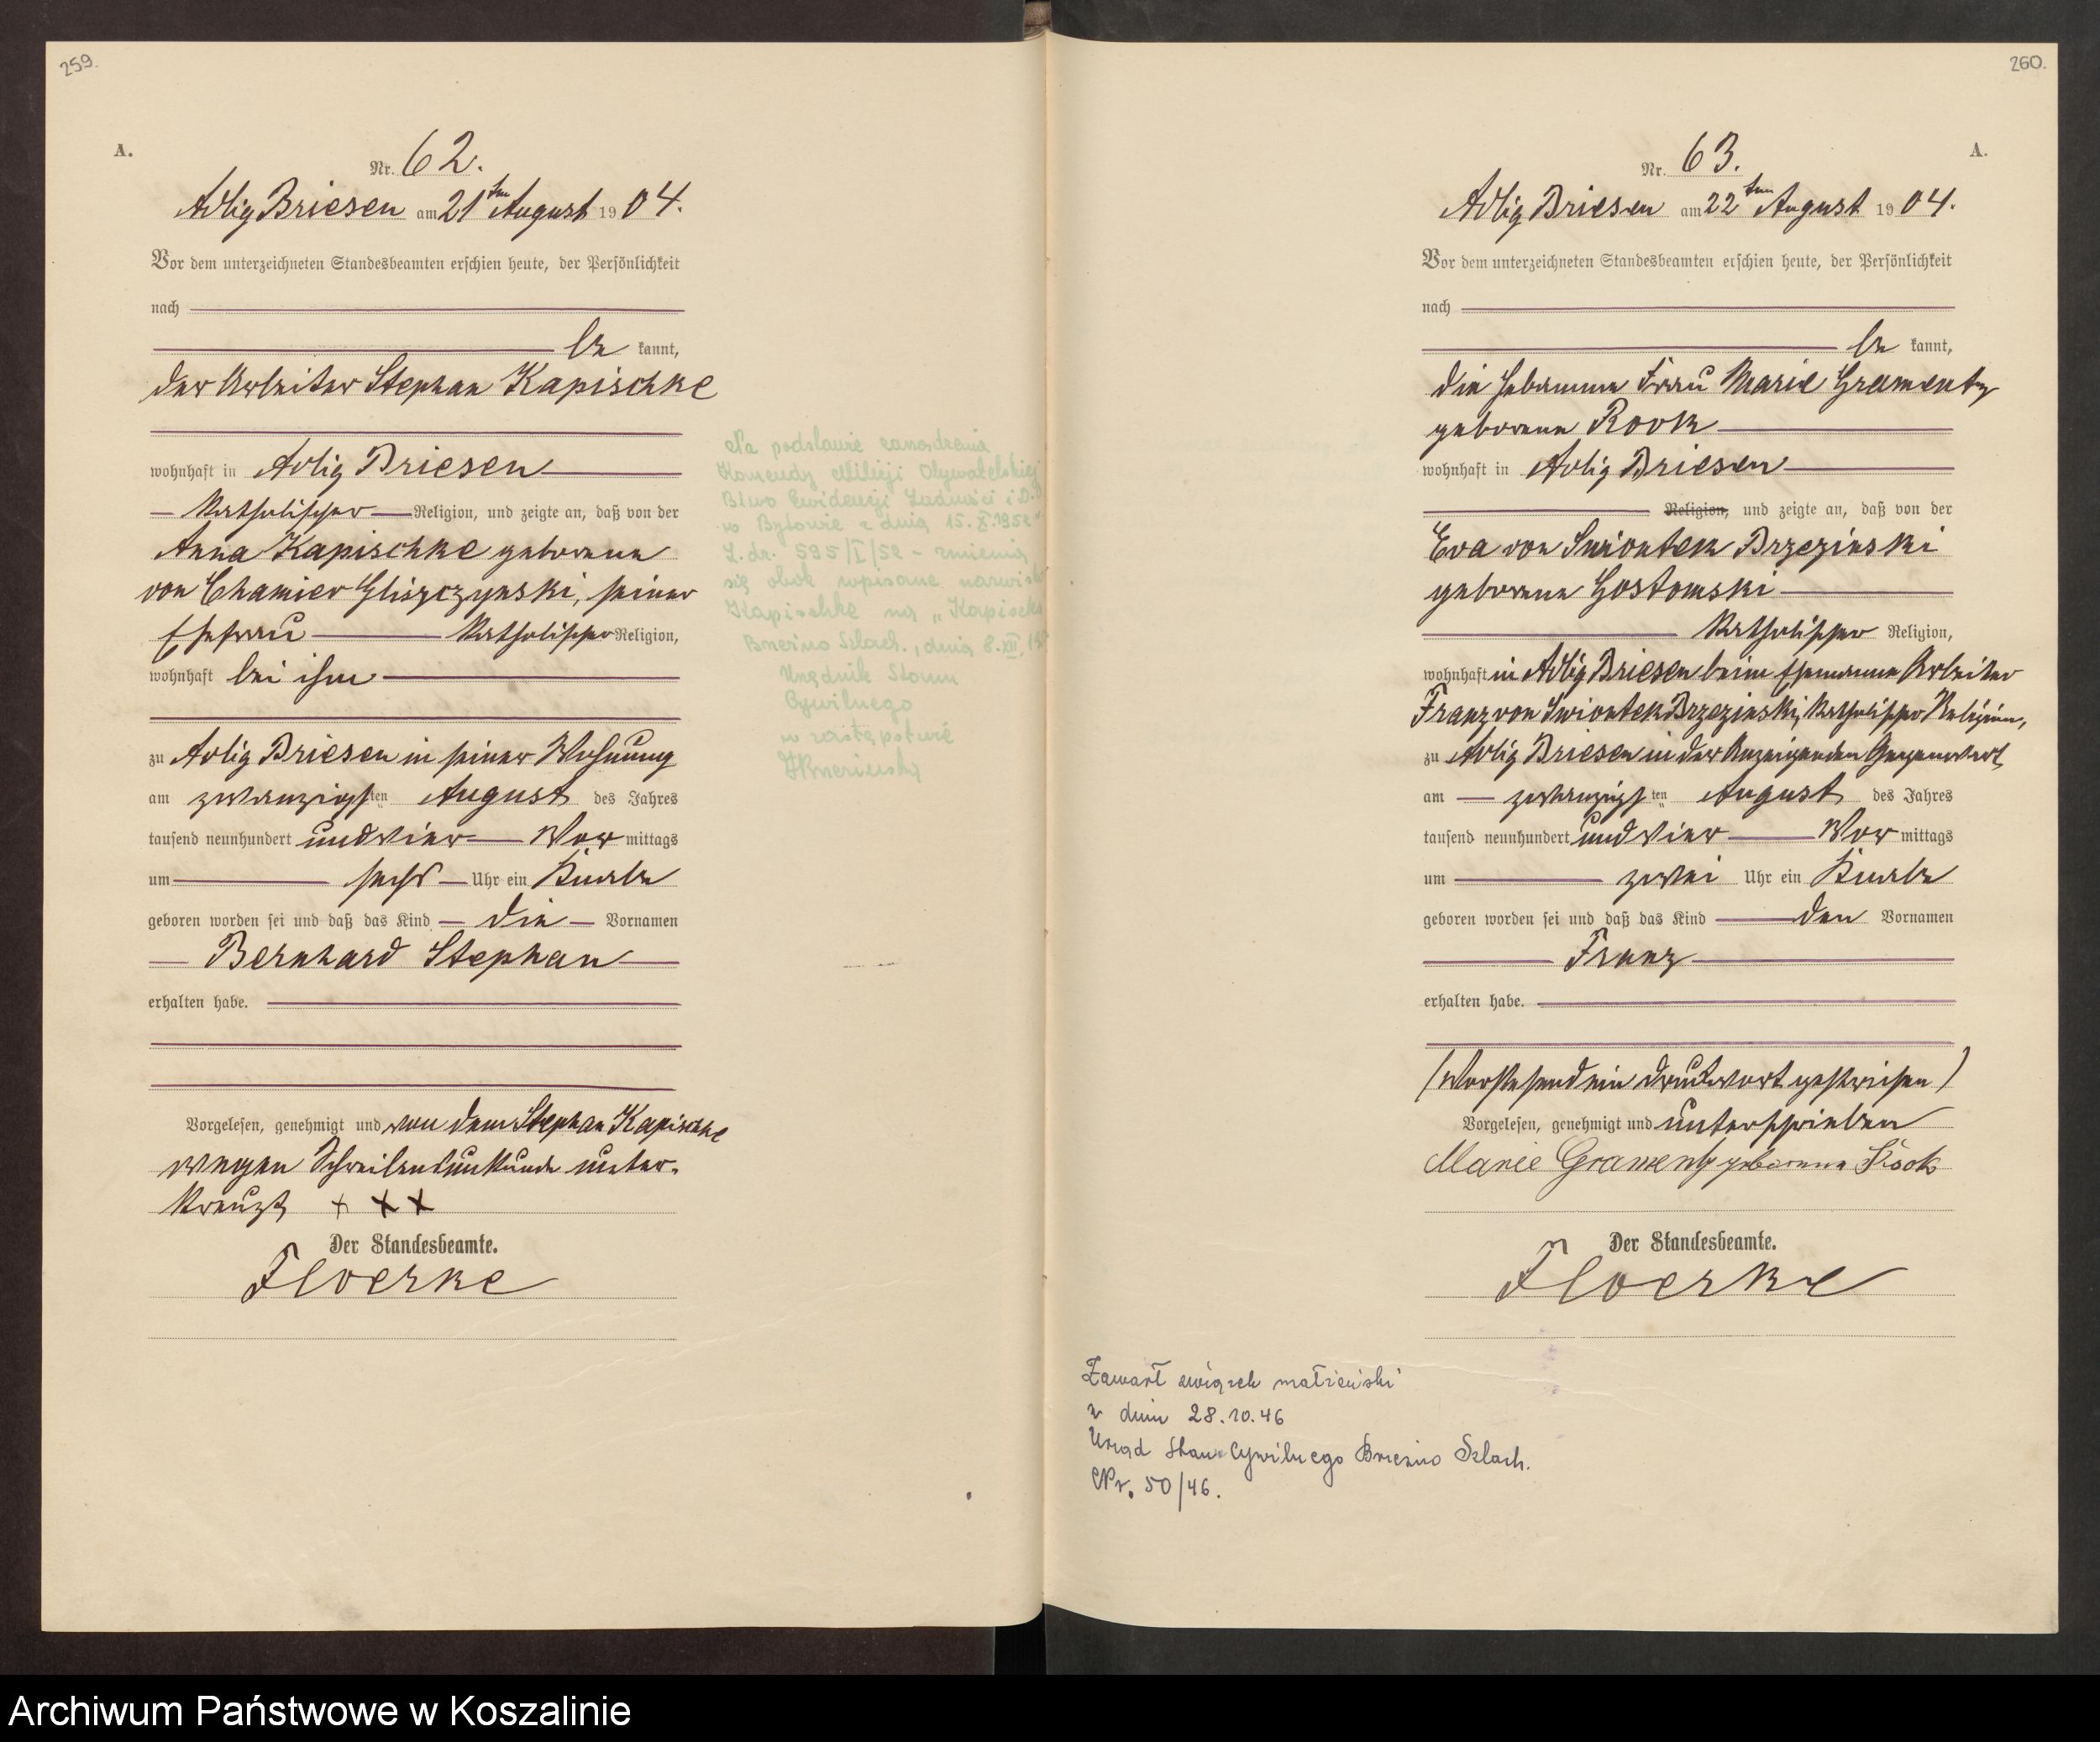 259.
A.
Nr. 62.
Adlig Briesen am 21ten August 1904.
Vor dem unterzeichneten Standesbeamten erschien heute, der Persönlichkeit
nach
be kannt,
der Arbeiter Stephan Kapischke
wohnhaft in Adlig Briesen
katholischer Religion, und zeigte an, daß von der
Anna Kapischke geborene
von Chamier Gliszczynski, seiner
Ehefrau katholischer Religion,
wohnhaft bei ihm
zu Adlig Briesen in seiner Wohnung
am zwanzigsten August des Jahres
tausend neunhundert und vier Vor mittags
um sechs Uhr ein Knabe
geboren worden sei und daß das Kind die Vornamen
Bernhard Stephan
erhalten habe.
Vorgelesen, genehmigt und von dem Stephan Kapischke
wegen Schreibensunkunde unter-
kreuzt + + +
Der Standesbeamte.
Floerke
Na podstawie zarządzenia
Komendy Milicji Obywatelskiej
Biuro Ewidencji Ludności i D.
w Bytowie z dnia 15.X.1952
L.dz. 595/I/52 - zmienia
się obok wpisane nazwisko
Kapischke na „Kapiszka
Brzeźno Szlach., dnia 8.XII.
Urzędnik Stanu
Cywilnego
w zastępstwie
260.
A.
Nr. 63.
Adlig Briesen am 22ten August 1904.
Vor dem unterzeichneten Standesbeamten erschien heute, der Persönlichkeit
nach
be kannt,
die Hebamme Frau Marie Gramentz
geborene Rook
wohnhaft in Adlig Briesen
Religion, und zeigte an, daß von der
Eva von Swiontek Brzezinski
geborene Gostomski
katholischer Religion,
wohnhaft in Adlig Briesen beim Ehemanne Arbeiter
Franz von Swiontek Brzezinski, katholischer Religion,
zu Adlig Briesen in der Anzeigenden Gegenwart,
am zwanzigsten August des Jahres
tausend neunhundert und vier Vor mittags
um zwei Uhr ein Knabe
geboren worden sei und daß das Kind den Vornamen
Franz
erhalten habe.
(Vorstehend ein Druckwort gestrichen)
Vorgelesen, genehmigt und unterschrieben
Marie Gramentz geborene Rook
Der Standesbeamte.
Floerke
Zawarł związek małżeński
w dniu 28.10.46
Urząd Stanu Cywilnego Brzeźno Szlach.
Nr. 50/46.
Archiwum Państwowe w Koszalinie